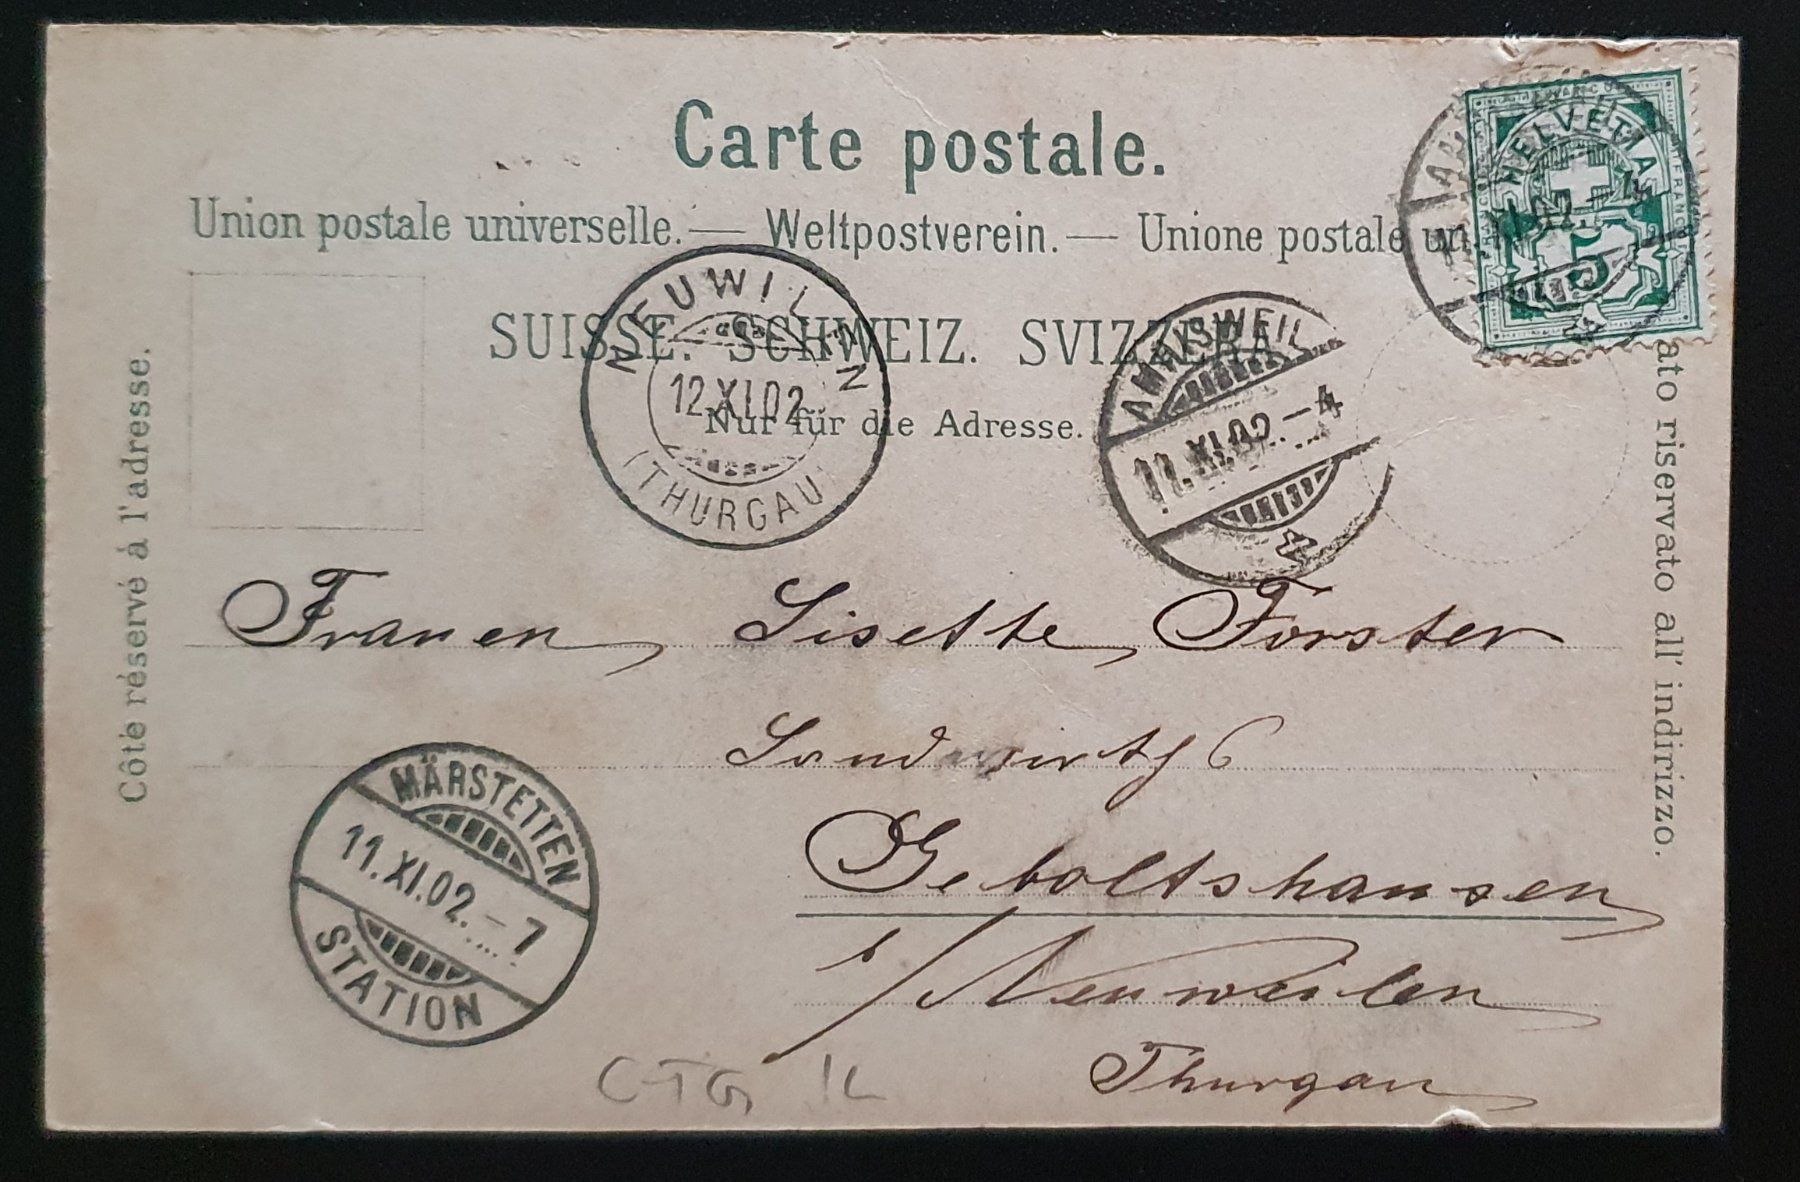 Carte postale.
Union postale universelle. — Weltpostverein. — Unione postale un
SUISSE. SCHWEIZ. SVIZZERA.
Nur für die Adresse.
Côté réservé à l'adresse.
ato riservato all' indirizzo.
HELVETIA
FRANCO
5
11.XI.02.-4
NEUWILEN
12.XI.02
(THURGAU)
AMRISWEIL
11.XI.02.-4
MÄRSTETTEN
11.XI.02.-7
STATION
Frauen, Lisette Forster
Landwirths
Geboltshausen
b/Neuweilen
Thurgau
CTG